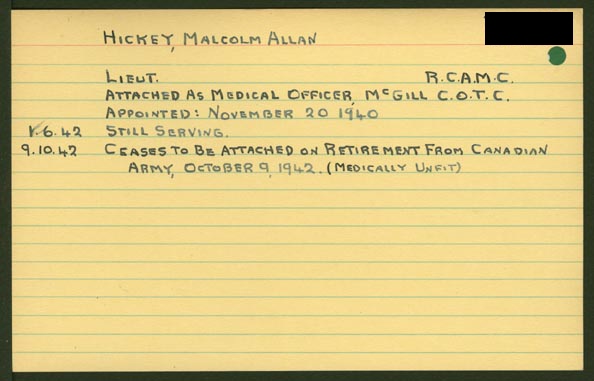 HICKEY, MALCOLM ALLAN
LIEUT. R.C.A.M.C.
ATTACHED AS MEDICAL OFFICER, McGILL C.O.T.C.
APPOINTED: NOVEMBER 20 1940
1.6.42 STILL SERVING.
9.10.42 CEASES TO BE ATTACHED ON RETIREMENT FROM CANADIAN
ARMY, OCTOBER 9, 1942. (MEDICALLY UNFIT)